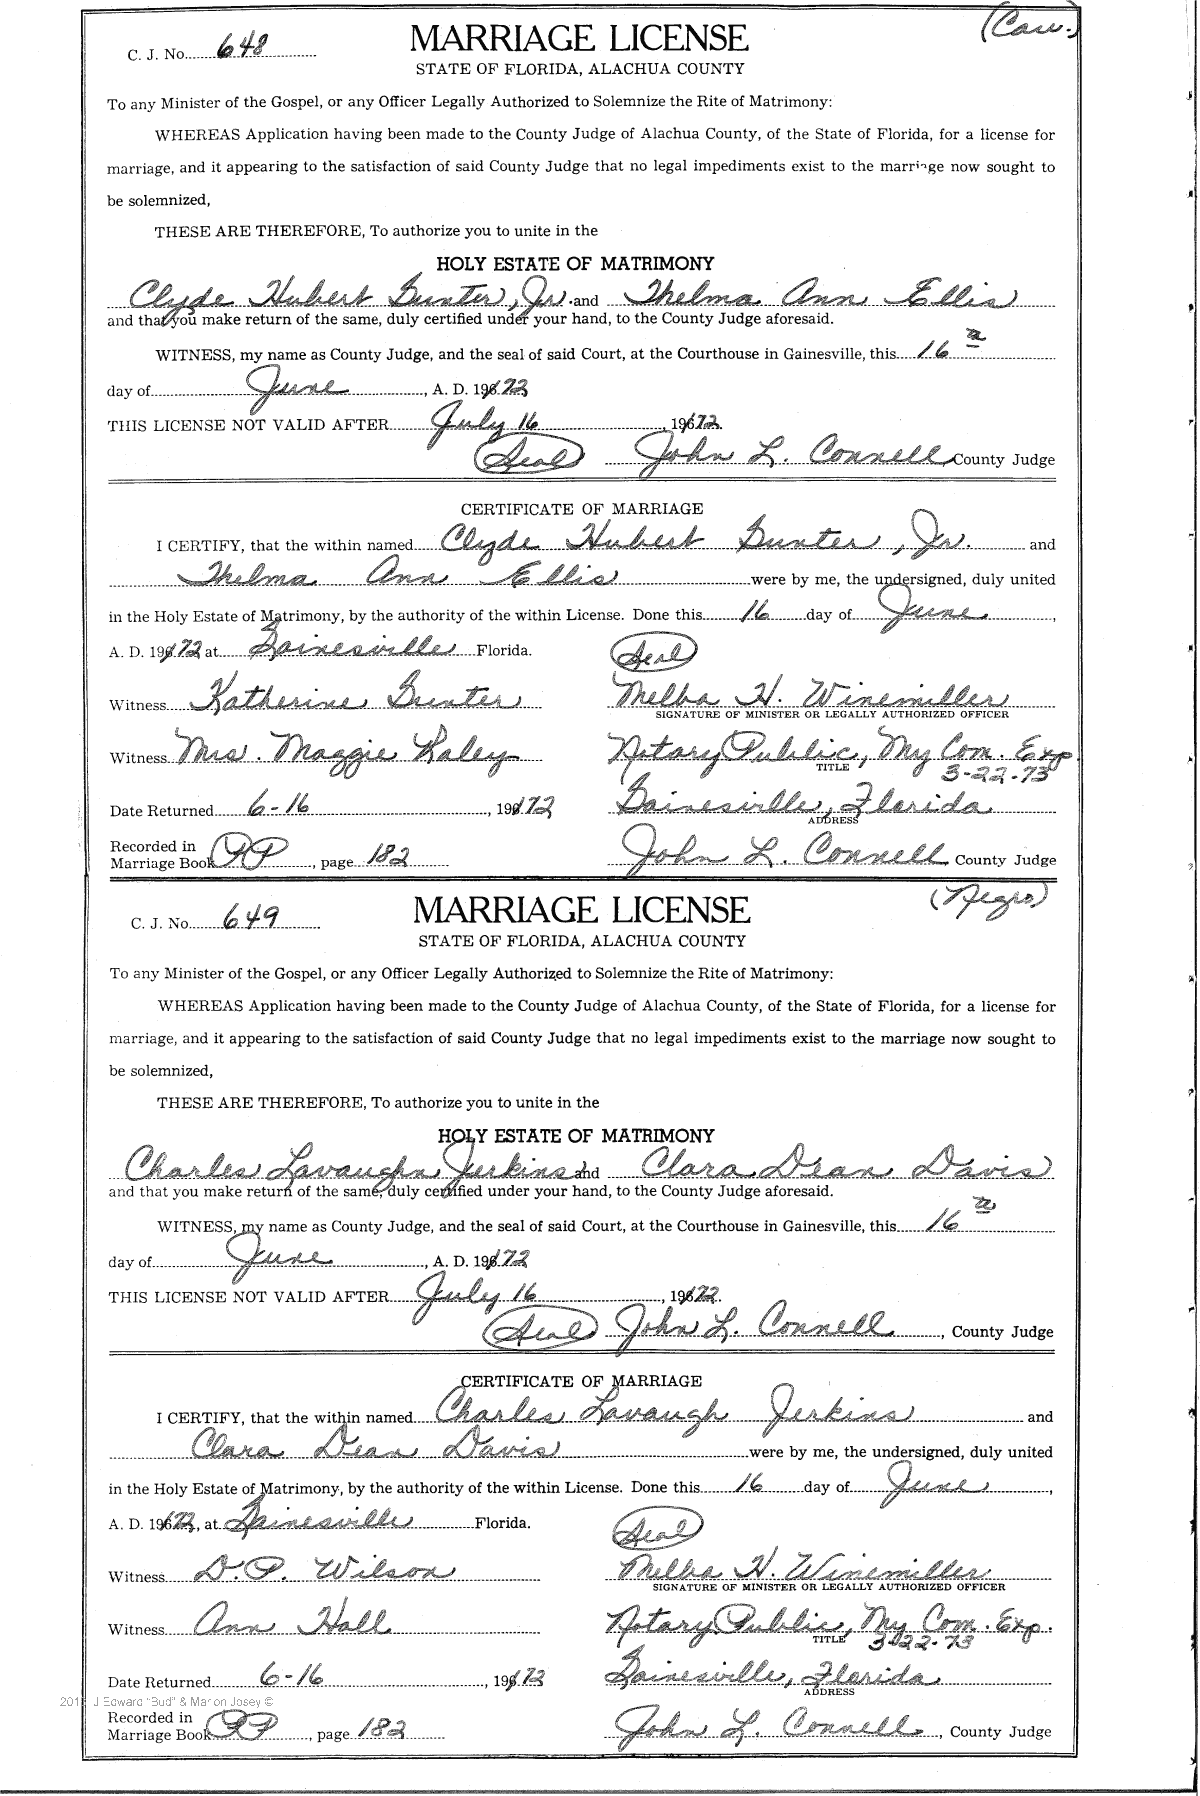 (Cau.)
C. J. No. 648
MARRIAGE LICENSE
STATE OF FLORIDA, ALACHUA COUNTY
To any Minister of the Gospel, or any Officer Legally Authorized to Solemnize the Rite of Matrimony:
WHEREAS Application having been made to the County Judge of Alachua County, of the State of Florida, for a license for
marriage, and it appearing to the satisfaction of said County Judge that no legal impediments exist to the marriage now sought to
be solemnized,
THESE ARE THEREFORE, To authorize you to unite in the
HOLY ESTATE OF MATRIMONY
Clyde Hubert Gunter, Jr. and Thelma Ann Ellis
and that you make return of the same, duly certified under your hand, to the County Judge aforesaid.
WITNESS, my name as County Judge, and the seal of said Court, at the Courthouse in Gainesville, this 16th
day of June, A. D. 1972
THIS LICENSE NOT VALID AFTER July 16, 1972.
(Seal) John L. Connell County Judge
CERTIFICATE OF MARRIAGE
I CERTIFY, that the within named Clyde Hubert Gunter, Jr. and
Thelma Ann Ellis were by me, the undersigned, duly united
in the Holy Estate of Matrimony, by the authority of the within License. Done this 16 day of June,
A. D. 1972 at Gainesville Florida. (Seal)
Witness Katherine Gunter Melba H. Winemiller
SIGNATURE OF MINISTER OR LEGALLY AUTHORIZED OFFICER
Witness Mrs. Maggie Raley Notary Public, My Com. Exp.
TITLE 3-22-73
Date Returned 6-16, 1972 Gainesville, Florida
ADDRESS
Recorded in
Marriage Book PP, page 182 John L. Connell County Judge
(Negro)
C. J. No. 649
MARRIAGE LICENSE
STATE OF FLORIDA, ALACHUA COUNTY
To any Minister of the Gospel, or any Officer Legally Authorized to Solemnize the Rite of Matrimony:
WHEREAS Application having been made to the County Judge of Alachua County, of the State of Florida, for a license for
marriage, and it appearing to the satisfaction of said County Judge that no legal impediments exist to the marriage now sought to
be solemnized,
THESE ARE THEREFORE, To authorize you to unite in the
HOLY ESTATE OF MATRIMONY
Charles Lavaughn Jerkins and Clara Dean Davis
and that you make return of the same, duly certified under your hand, to the County Judge aforesaid.
WITNESS, my name as County Judge, and the seal of said Court, at the Courthouse in Gainesville, this 16th
day of June, A. D. 1972
THIS LICENSE NOT VALID AFTER July 16, 1972.
(Seal) John L. Connell, County Judge
CERTIFICATE OF MARRIAGE
I CERTIFY, that the within named Charles Lavaugh Jerkins and
Clara Dean Davis were by me, the undersigned, duly united
in the Holy Estate of Matrimony, by the authority of the within License. Done this 16 day of June,
A. D. 1972, at Gainesville Florida. (Seal)
Witness D. P. Wilson Melba H. Winemiller
SIGNATURE OF MINISTER OR LEGALLY AUTHORIZED OFFICER
Witness Ann Hall Notary Public, My Com. Exp.
TITLE 3-22-73
Date Returned 6-16, 1972 Gainesville, Florida
ADDRESS
J Edward "Bud" & Marion Josey ©
Recorded in
Marriage Book PP, page 182 John L. Connell, County Judge